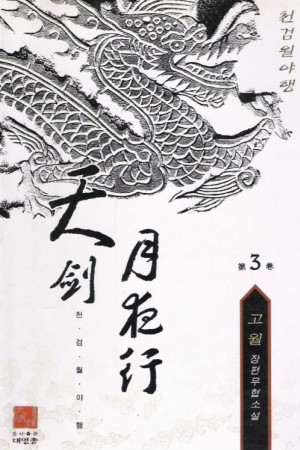 천검월야행
天剑
月夜行
천·검·월·야·행
第3卷
고월 장편무협소설
도서출판
대명종